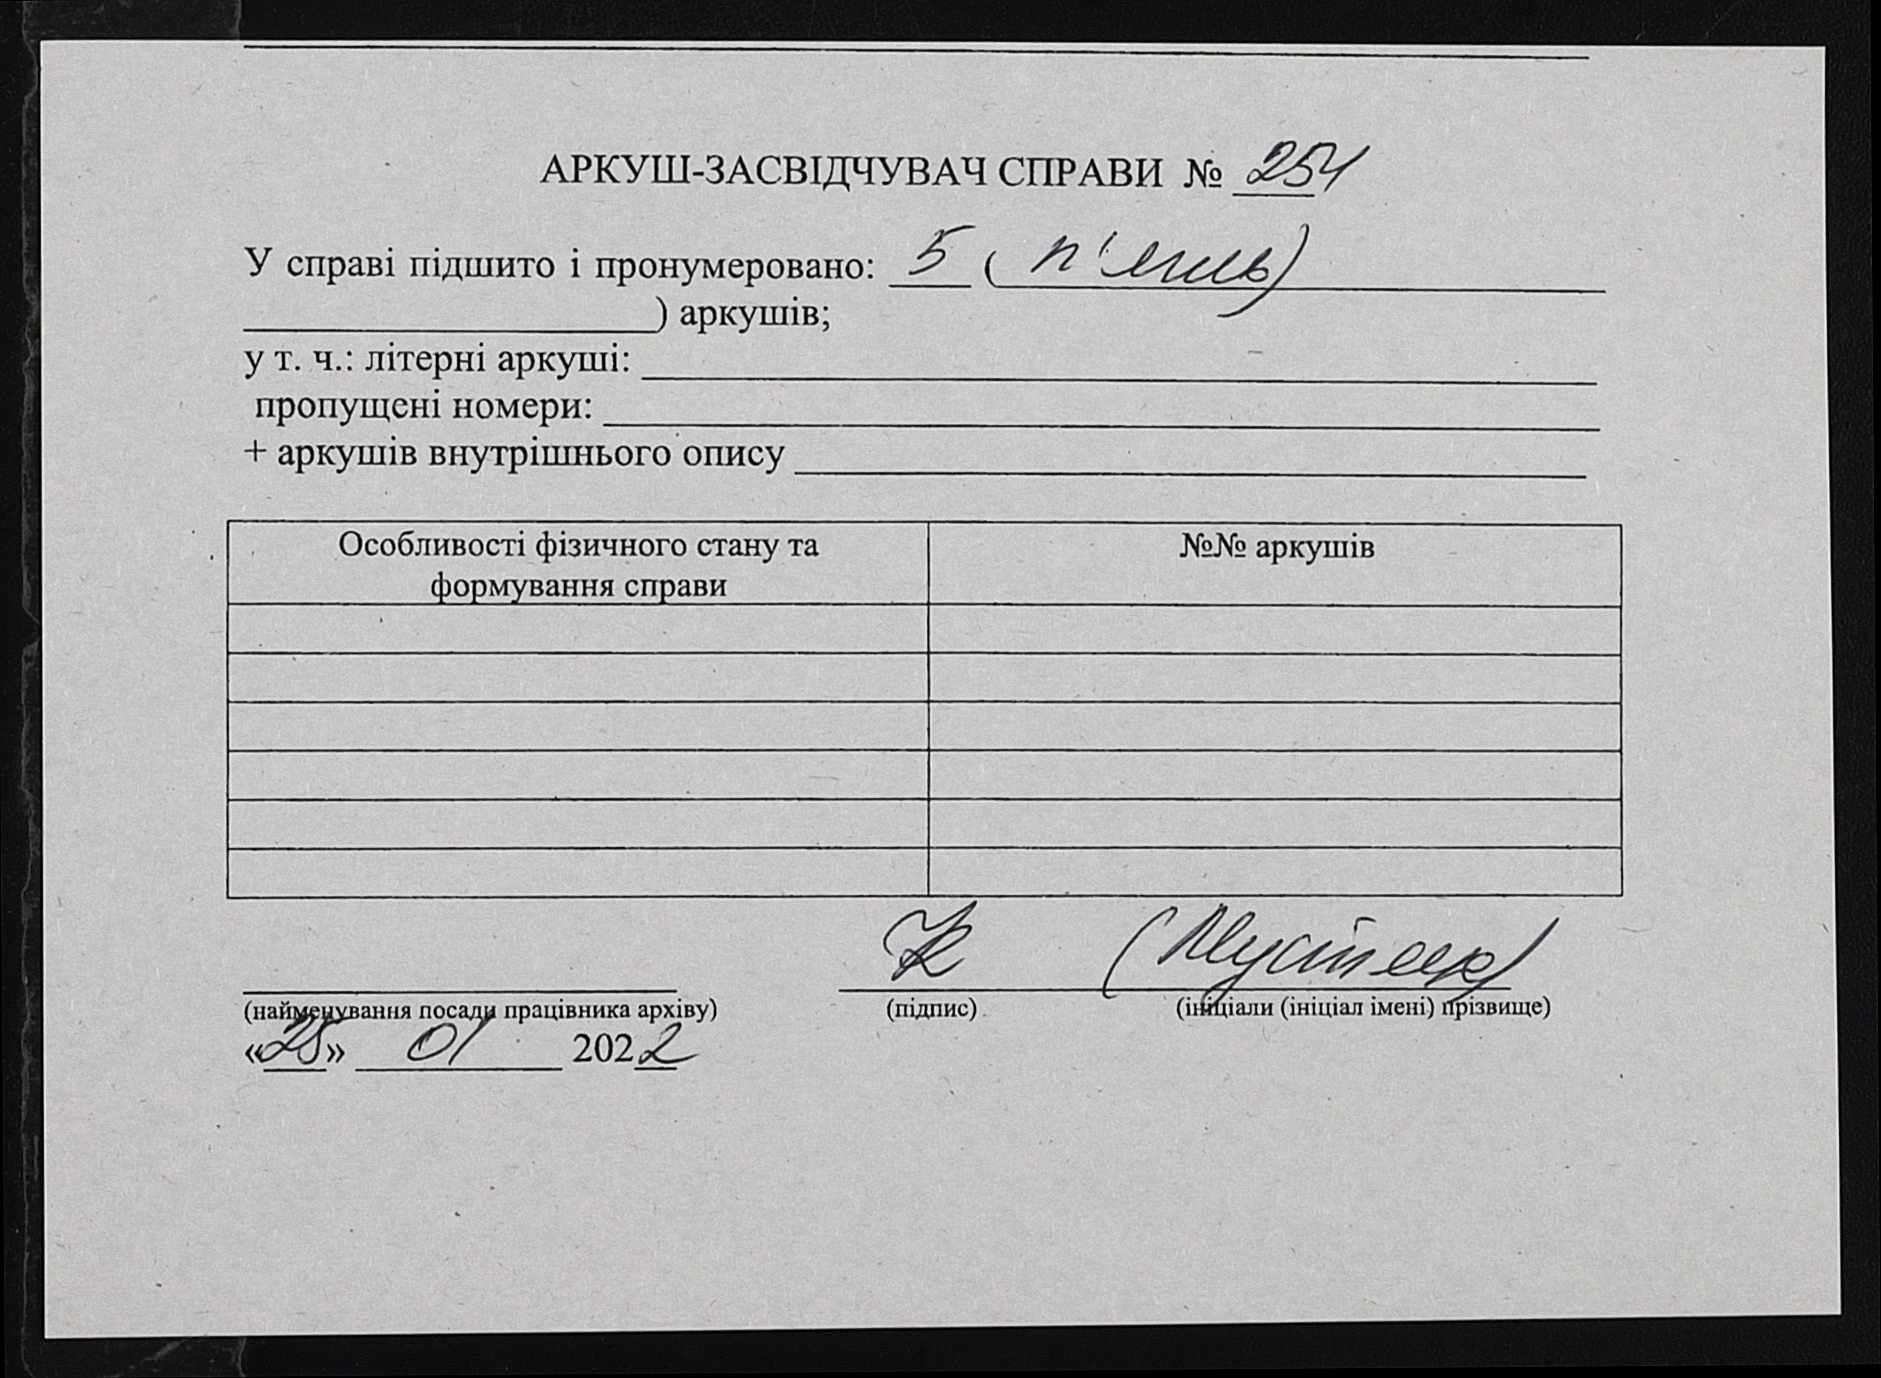 АРКУШ-ЗАСВІДЧУВАЧ СПРАВИ № 254
У справі підшито і пронумеровано: 5 ( п'ять)
) аркушів;
у т. ч.: літерні аркуші:
пропущені номери:
+ аркушів внутрішнього опису
Особливості фізичного стану та
формування справи
№№ аркушів
(найменування посади працівника архіву)
(підпис)
(ініціали (ініціал імені) прізвище)
«25» 01 2022